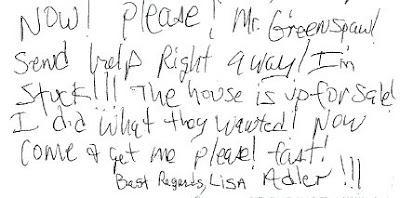 Now! Please! Mr. Greenspaw!
Send help Right away! I'm
Stuck!!! The house is up for sale!
I did what they wanted! Now
Come & get me please! fast!
Best Regards, Lisa Adler!!!